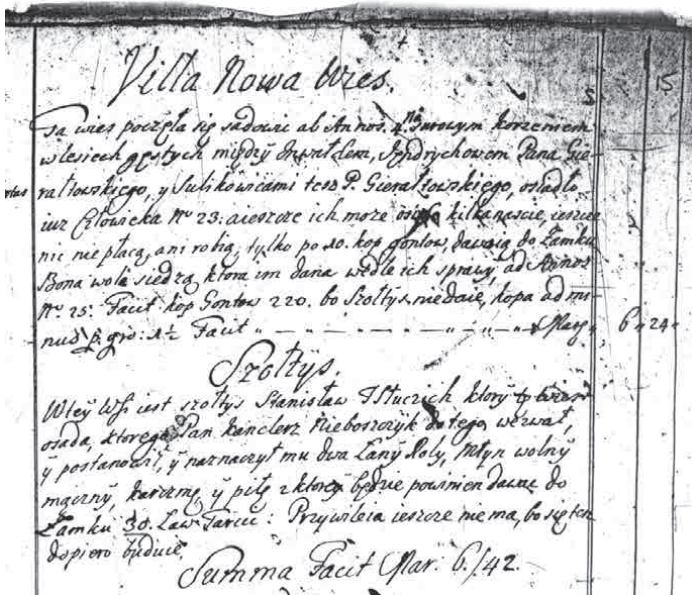 15
Villa Nowa Wies.
5
Ta wies poczęła się sadowic ab Annos 4 surowym korzeniem
w lesiech gęstych między Inwałdem, Jędrychowem Pana Gie-
rałtowskiego, y Sulikowicami tesz P. Gierałtowskiego, osiadło
iusz Człowieka No 23: a ieszcze ich moze kilkanascie, ieszcze
nic nie płacą, ani robią, tylko po 10. kop gontow, dawaią do Zamku
Bona wole siedzą, ktora im dana wedle ich sprawy, ad Annos
No 25: Facit kop Gontow 220. bo Szołtys niedaie, kopa ad mi-
nus p. gro: 1½ Facit Mar 6 24
Szołtys.
Wtey Wsi iest szołtys Stanisław który tę wies
osada, ktorego Pan Kanclerz Nieboszczyk do tego wezwał,
y postanowił, y naznaczył mu dwa Łany Roly, Młyn wolny
mączny, karczmę, y piłę z ktorey będzie powinien dawac do
Zamku 30. Law Tarcic: Przywileia ieszcze nie ma, bo się ten
dopiero buduie.
Summa Facit Mar. 6./42.